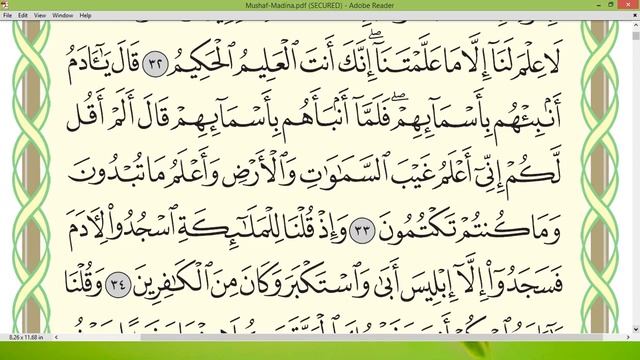 Mushaf-Madina.pdf (SECURED) - Adobe Reader
File Edit View Window Help
لَا عِلْمَ لَنَآ إِلَّا مَا عَلَّمْتَنَآ ۖ إِنَّكَ أَنتَ ٱلْعَلِيمُ ٱلْحَكِيمُ ٣٢ قَالَ يَٰٓـَٔادَمُ
أَنۢبِئْهُم بِأَسْمَآئِهِمْ ۖ فَلَمَّآ أَنۢبَأَهُم بِأَسْمَآئِهِمْ قَالَ أَلَمْ أَقُل
لَّكُمْ إِنِّىٓ أَعْلَمُ غَيْبَ ٱلسَّمَٰوَٰتِ وَٱلْأَرْضِ وَأَعْلَمُ مَا تُبْدُونَ
وَمَا كُنتُمْ تَكْتُمُونَ ٣٣ وَإِذْ قُلْنَا لِلْمَلَٰٓئِكَةِ ٱسْجُدُوا۟ لِـَٔادَمَ
فَسَجَدُوٓا۟ إِلَّآ إِبْلِيسَ أَبَىٰ وَٱسْتَكْبَرَ وَكَانَ مِنَ ٱلْكَٰفِرِينَ ٣٤ وَقُلْنَا
8.26 x 11.68 in